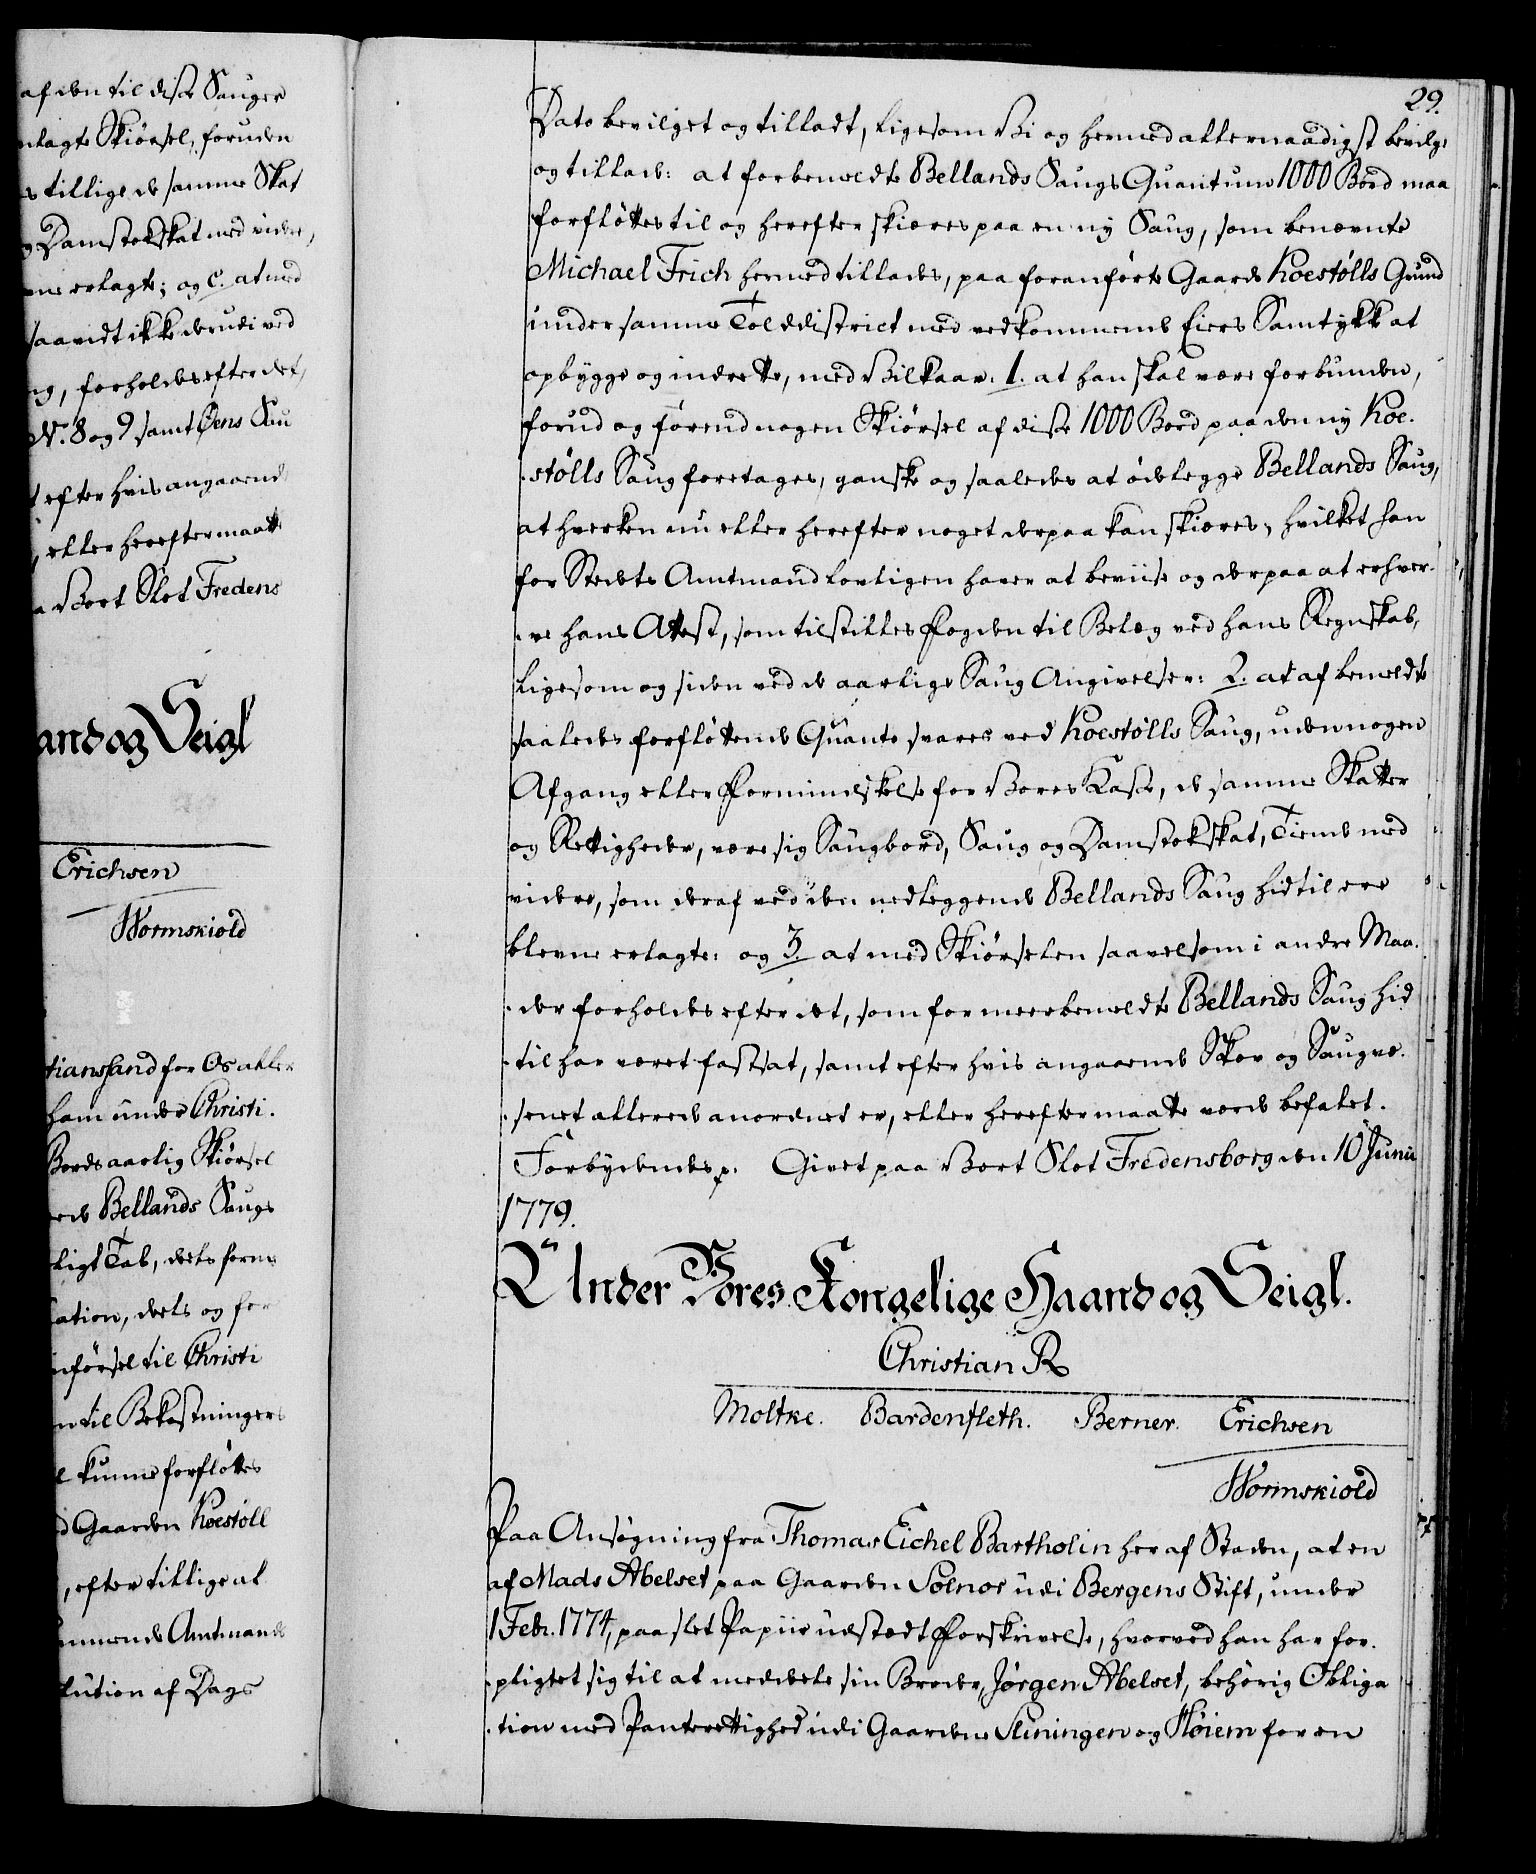 af den til disse Sauger
nlagte Skiørsel, foruden
s tillige de samme Skat
g Damstokskat med videre,
ene erlagte; og C. at med
saavidt ikke derudi ved
ng, forholdes efter det,
No. 8 og 9 samt Øens Sau
t efter hvis angaaende
, eller herefter maatte
a Vort Slot Fredens
and og Seigl
Erichsen
Wormskiold
tianssand for Os aller
ham under Christi-
Bords aarlig Skiørsel
ved Bellands Saugs
ligt Tab, deels form
cation, deels og for
nførsel til Christi
n til Bekostninger
l kunne forfløttes
d Gaarden Koestøll
, efter tillige at
mmende Amtmands
lution af Dags
29.
Dato bevilget og tilladt, ligesom Vi og hermed allernaadigst bevilge
og tillade: at forbemeldte Bellands Saugs Quantum 1000 Bord maa
forfløttes til og herefter skiæres paa en ny Saug, som benævnte
Michael Frich hermed tillades, paa foranførte Gaards Koestølls Grund
under samme Tolddistrict med vedkommende Eiers Samtykke at
opbygge og indrette, med Vilkaar. 1. at han skal være forbunden,
forud og førend nogen Skiørsel af disse 1000 Bord paa den ny Koe-
-stølls Saug foretages, ganske og saaledes at ødelegge Bellands Saug,
at hverken nu eller herefter noget derpaa kan skiæres, hvilket han
for Stedets Amtmand lovligen haver at beviise og derpaa at erhver-
-ve hans Attest, som tilstilles Fogden til Belæg ved hans Regnskab,
ligesom og siden ved de aarlige Saug Angivelser: 2. at af bemeldte
saaledes forfløttende Quanto svares ved Koestølls Saug, uden nogen
Afgang eller Formindskelse for Vores Kasse, de samme Skatter
og Rettigheder, være sig Saugbord, Saug og Damstokskat, Tiende med
videre, som deraf ved den nedleggende Bellands Saug hidtil ere
blevne erlagte: og 3. at med Skiørselen saavelsom i andre Maa-
-der forholdes efter det, som for meerbemeldte Bellands Saug hid
-til har været fastsat, samt efter hvis angaaende Skov og Saugvæ-
-senet allerede anordnet er, eller herefter maatte vorde befalet.
Forbydendes p. Givet paa Vort Slot Fredensborg den 10 Junii
1779.
Under Vores Kongelige Haand og Seigl.
Christian R
Moltke. Bardenfleth. Berner. Erichsen
Wormskiold
Paa Ansøgning fra Thomas Eichel Bartholin her af Staden, at en
af Mads Abelset paa Gaarden Solnor udi Bergens Stift, under
1 Febr. 1774, paa slet Papiir udstædt Forskrivelse, hvorved han har for-
-pligtet sig til at meddele sin Broder, Jørgen Abelset, behørig Obliga
-tion med Panterettighed udi Gaardene Sliningen og Høiem for en